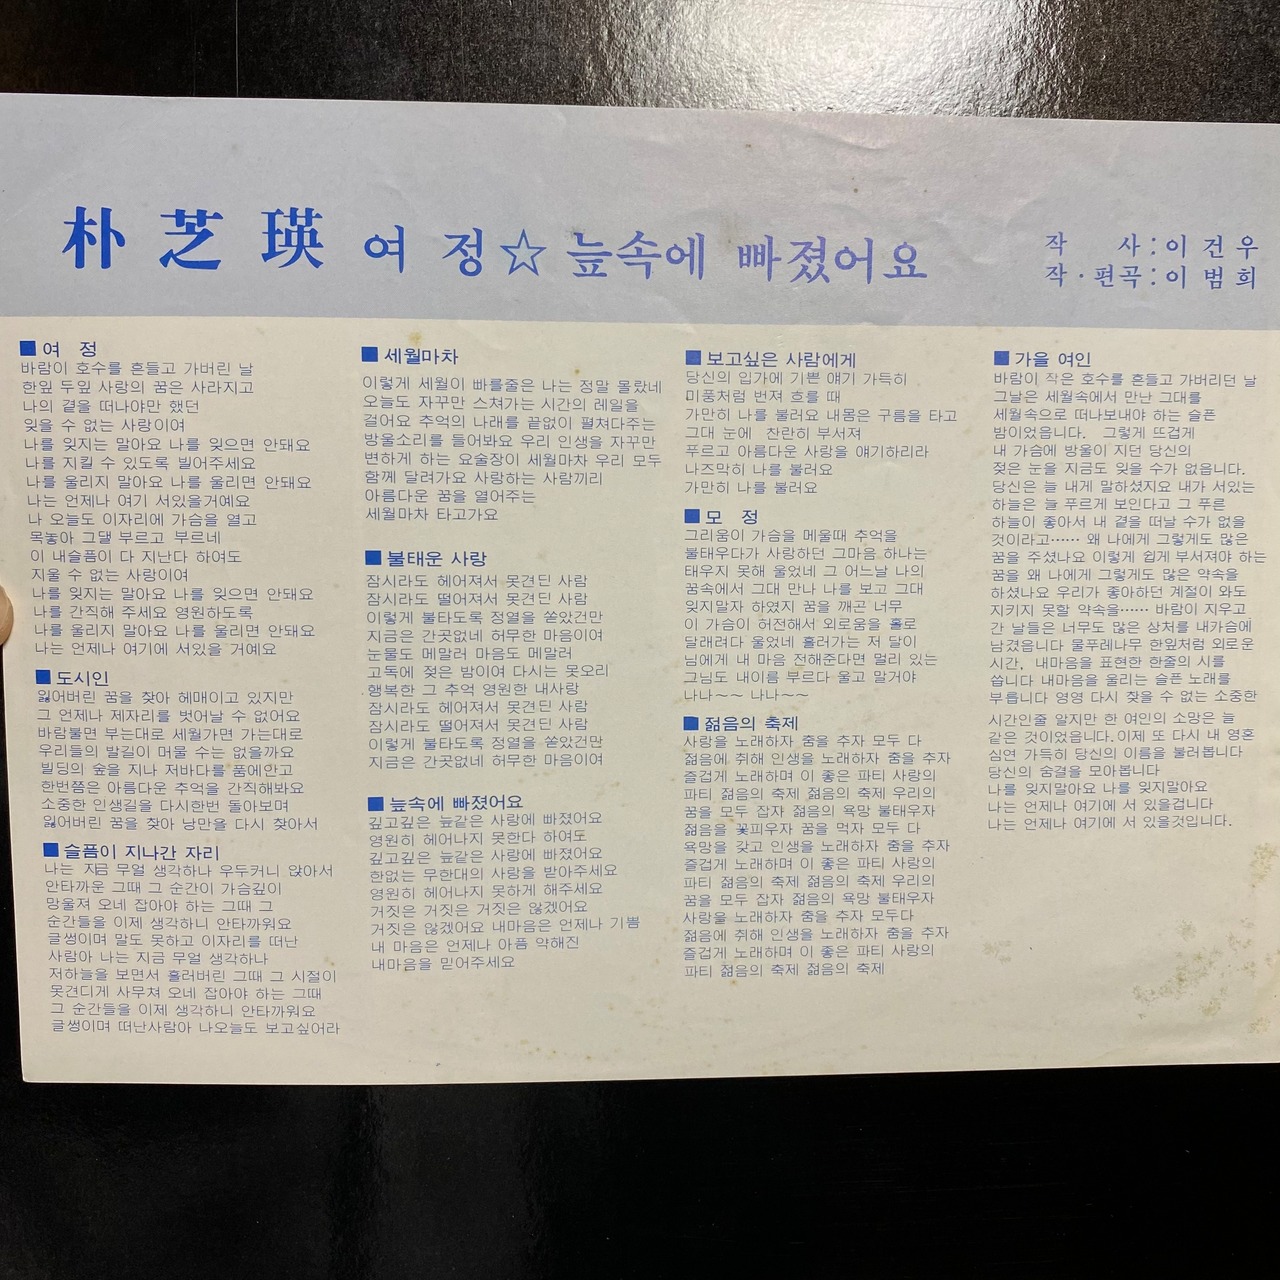 朴芝瑛 여정☆늪속에 빠졌어요
작 사:이건우
작·편곡:이범희
■여 정
바람이 호수를 흔들고 가버린 날
한잎 두잎 사랑의 꿈은 사라지고
나의 곁을 떠나야만 했던
잊을 수 없는 사랑이여
나를 잊지는 말아요 나를 잊으면 안돼요
나를 지킬 수 있도록 빌어주세요
나를 울리지 말아요 나를 울리면 안돼요
나는 언제나 여기 서있을거예요
나 오늘도 이자리에 가슴을 열고
목놓아 그댈 부르고 부르네
이 내슬픔이 다 지난다 하여도
지울 수 없는 사랑이여
나를 잊지는 말아요 나를 잊으면 안돼요
나를 간직해 주세요 영원하도록
나를 울리지 말아요 나를 울리면 안돼요
나는 언제나 여기에 서있을 거예요
■도시인
잃어버린 꿈을 찾아 헤매이고 있지만
그 언제나 제자리를 벗어날 수 없어요
바람불면 부는대로 세월가면 가는대로
우리들의 발길이 머물 수는 없을까요
빌딩의 숲을 지나 저바다를 품에안고
한번쯤은 아름다운 추억을 간직해봐요
소중한 인생길을 다시한번 돌아보며
잃어버린 꿈을 찾아 낭만을 다시 찾아서
■슬픔이 지나간 자리
나는 지금 무얼 생각하나 우두커니 앉아서
안타까운 그때 그 순간이 가슴깊이
망울져 오네 잡아야 하는 그때 그
순간들을 이제 생각하니 안타까워요
글썽이며 말도 못하고 이자리를 떠난
사람아 나는 지금 무얼 생각하나
저하늘을 보면서 흘러버린 그때 그 시절이
못견디게 사무쳐 오네 잡아야 하는 그때
그 순간들을 이제 생각하니 안타까워요
글썽이며 떠난사람아 나오늘도 보고싶어라
■세월마차
이렇게 세월이 빠를줄은 나는 정말 몰랐네
오늘도 자꾸만 스쳐가는 시간의 레일을
걸어요 추억의 나래를 끝없이 펼쳐다주는
방울소리를 들어봐요 우리 인생을 자꾸만
변하게 하는 요술장이 세월마차 우리 모두
함께 달려가요 사랑하는 사람끼리
아름다운 꿈을 열어주는
세월마차 타고가요
■불태운 사랑
잠시라도 헤어져서 못견딘 사람
잠시라도 떨어져서 못견딘 사람
이렇게 불타도록 정열을 쏟았건만
지금은 간곳없네 허무한 마음이여
눈물도 메말러 마음도 메말러
고독에 젖은 밤이여 다시는 못오리
행복한 그 추억 영원한 내사랑
잠시라도 헤어져서 못견딘 사람
잠시라도 떨어져서 못견딘 사람
이렇게 불타도록 정열을 쏟았건만
지금은 간곳없네 허무한 마음이여
■늪속에 빠졌어요
깊고깊은 늪같은 사랑에 빠졌어요
영원히 헤어나지 못한다 하여도
깊고깊은 늪같은 사랑에 빠졌어요
한없는 무한대의 사랑을 받아주세요
영원히 헤어나지 못하게 해주세요
거짓은 거짓은 거짓은 않겠어요
거짓은 않겠어요 내마음은 언제나 기쁨
내 마음은 언제나 아픔 약해진
내마음을 믿어주세요
■보고싶은 사람에게
당신의 입가에 기쁜 얘기 가득히
미풍처럼 번져 흐를 때
가만히 나를 불러요 내몸은 구름을 타고
그대 눈에 찬란히 부서져
푸르고 아름다운 사랑을 얘기하리라
나즈막히 나를 불러요
가만히 나를 불러요
■모 정
그리움이 가슴을 메울때 추억을
불태우다가 사랑하던 그마음 하나는
태우지 못해 울었네 그 어느날 나의
꿈속에서 그대 만나 나를 보고 그대
잊지말자 하였지 꿈을 깨곤 너무
이 가슴이 허전해서 외로움을 홀로
달래려다 울었네 흘러가는 저 달이
님에게 내 마음 전해준다면 멀리 있는
그님도 내이름 부르다 울고 말거야
나나~~ 나나~~
■젊음의 축제
사랑을 노래하자 춤을 추자 모두 다
젊음에 취해 인생을 노래하자 춤을 추자
즐겁게 노래하며 이 좋은 파티 사랑의
파티 젊음의 축제 젊음의 축제 우리의
꿈을 모두 잡자 젊음의 욕망 불태우자
젊음을 꽃피우자 꿈을 먹자 모두 다
욕망을 갖고 인생을 노래하자 춤을 추자
즐겁게 노래하며 이 좋은 파티 사랑의
파티 젊음의 축제 젊음의 축제 우리의
꿈을 모두 잡자 젊음의 욕망 불태우자
사랑을 노래하자 춤을 추자 모두다
젊음에 취해 인생을 노래하자 춤을 추자
즐겁게 노래하며 이 좋은 파티 사랑의
파티 젊음의 축제 젊음의 축제
■가을 여인
바람이 작은 호수를 흔들고 가버리던 날
그날은 세월속에서 만난 그대를
세월속으로 떠나보내야 하는 슬픈
밤이었읍니다. 그렇게 뜨겁게
내 가슴에 방울이 지던 당신의
젖은 눈을 지금도 잊을 수가 없읍니다.
당신은 늘 내게 말하셨지요 내가 서있는
하늘은 늘 푸르게 보인다고 그 푸른
하늘이 좋아서 내 곁을 떠날 수가 없을
것이라고…… 왜 나에게 그렇게도 많은
꿈을 주셨나요 이렇게 쉽게 부서져야 하는
꿈을 왜 나에게 그렇게도 많은 약속을
하셨나요 우리가 좋아하던 계절이 와도
지키지 못할 약속을…… 바람이 지우고,
간 날들은 너무도 많은 상처를 내가슴에
남겼읍니다 물푸레나무 한잎처럼 외로운
시간, 내마음을 표현한 한줄의 시를
씁니다 내마음을 울리는 슬픈 노래를
부릅니다 영영 다시 찾을 수 없는 소중한
시간인줄 알지만 한 여인의 소망은 늘
같은 것이었읍니다.이제 또 다시 내 영혼
심연 가득히 당신의 이름을 불러봅니다
당신의 숨결을 모아봅니다
나를 잊지말아요 나를 잊지말아요
나는 언제나 여기에 서 있을겁니다
나는 언제나 여기에 서 있을것입니다.